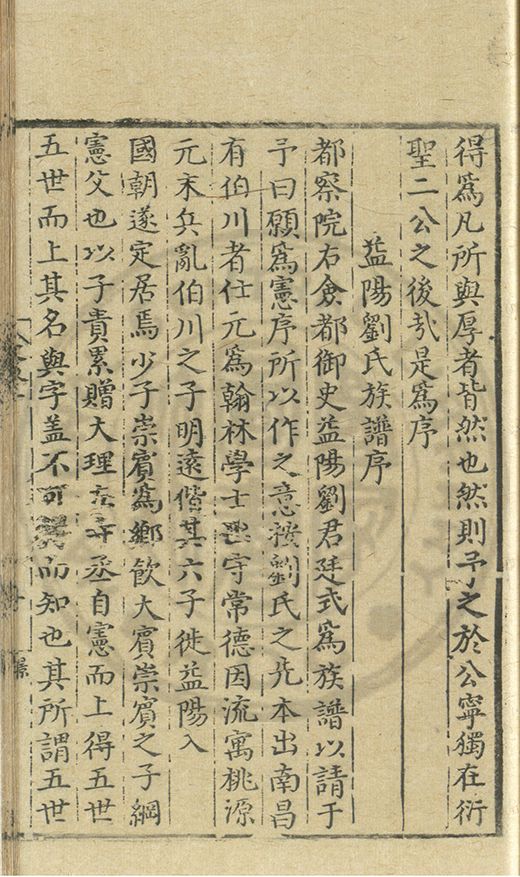 得爲凡所與厚者皆然也然則予之於公寧獨在衍
聖二公之後㢤是爲序
益陽劉氏族譜序
都察院右僉都御史益陽劉君廷式爲族譜以請于
予曰願爲憲序所以作之意按劉氏之先本出南昌
有伯川者仕元爲翰林學士出守常德因流寓桃源
元末兵亂伯川之子明遠偕其六子徙益陽入
國朝遂定居焉少子崇賓爲鄉飲大賓崇賓之子綱
憲父也以子貴累贈大理寺丞自憲而上得五世
五世而上其名與字盖不可而知也其所謂五世